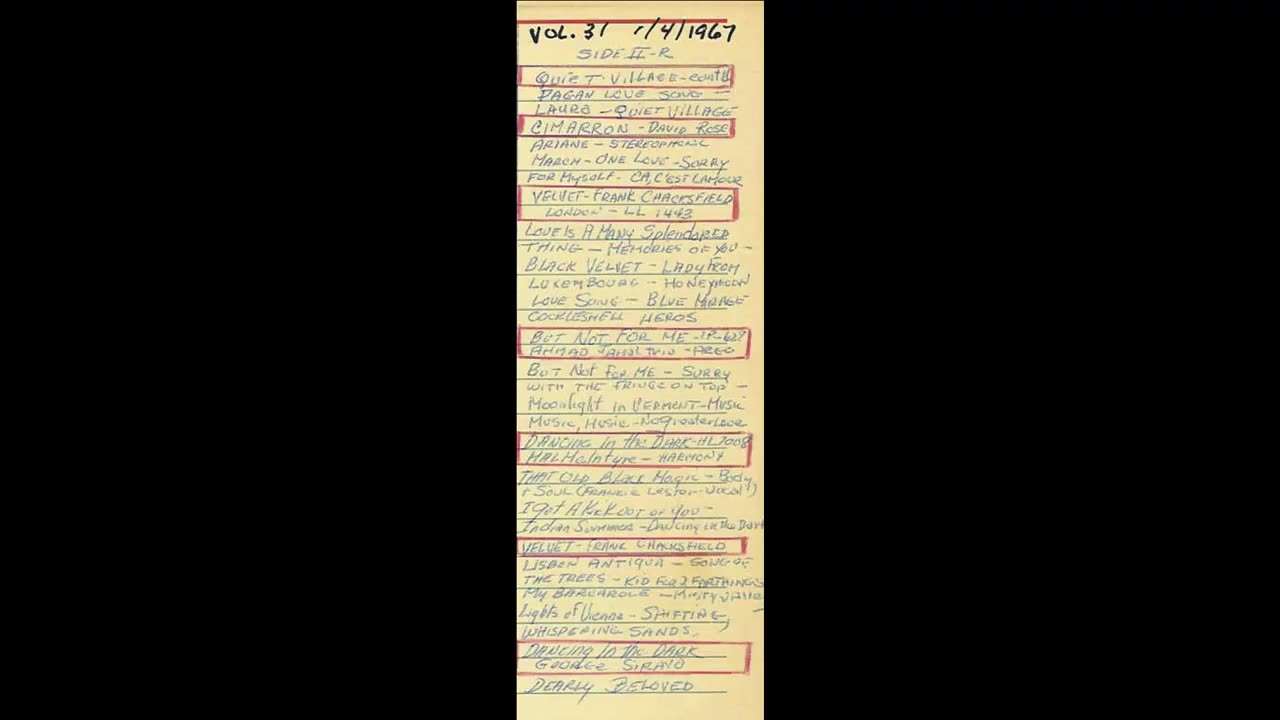 VOL. 31 1/4/1967
SIDE II-R
QUIET VILLAGE-CONT'D
PAGAN LOVE SONG -
LAURA - QUIET VILLAGE
CIMARRON - DAVID ROSE
ARIANE - STEREOPHONIC
MARCH - ONE LOVE - SORRY
FOR MYSELF - CA, C'EST L'AMOUR
VELVET - FRANK CHACKSFIELD
LONDON - LL 1443
LOVE IS A MANY SPLENDORED
THING - MEMORIES OF YOU -
BLACK VELVET - LADY FROM
LUXEMBOURG - HONEYMOON
LOVE SONG - BLUE MIRAGE
COCKLESHELL HEROS
BUT NOT FOR ME - LP-628
AHMAD JAMAL TRIO - ARGO
BUT NOT FOR ME - SURRY
WITH THE FRINGE ON TOP -
MOONLIGHT IN VERMONT - MUSIC
MUSIC, MUSIC - NO GREATER LOVE
DANCING IN THE DARK - HL7008
HAL McINTYRE - HARMONY
THAT OLD BLACK MAGIC - BODY
+ SOUL (FRANKIE LESTER - VOCAL)
I GET A KICK OUT OF YOU -
INDIAN SUMMER - DANCING IN THE DARK
VELVET - FRANK CHACKSFIELD
LISBON ANTIQUA - SONG OF
THE TREES - KID FOR 2 FARTHINGS
MY BARCAROLE - MISTY VALLEY
LIGHTS OF VIENNA - SHIFTING,
WHISPERING SANDS,
DANCING IN THE DARK
GEORGE SIRAVO
DEARLY BELOVED